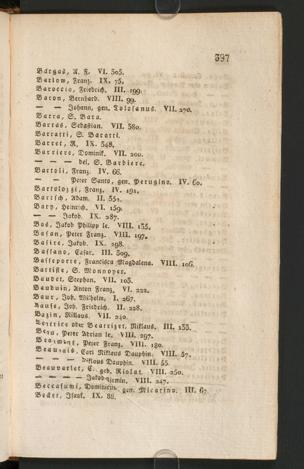 397
Bargas, A. F. VI. 505.
Barlow, Franz. IX. 75.
Baroccio, Friedrich. III. 199.
Baron, Bernhard. VIII. 99.
— — Johann, gen. Tolosanus. VII. 270.
Barra, S. Bara.
Barras, Sebastian. VII. 380.
Barratti, S. Baratti.
Barret, R. IX. 348.
Barriere, Dominik. VII. 200.
— — — del, S. Barbiere.
Bartoli, Franz. IV. 66.
— — Peter Santo, gen. Perugino. IV. 60.
Bartolozzi, Franz. IV. 191.
Bartsch, Adam. II. 351.
Bary, Heinrich. VI. 159.
— — Jakob. IX. 287.
Bas, Jakob Philipp le. VIII. 135.
Basan, Peter Franz. VIII. 197.
Basire, Jakob. IX. 298.
Bassano, Cäsar. III. 309.
Basseporte, Francisca Magdalena. VIII. 106.
Batiste, S. Monnoyer.
Baudet, Stephan. VII. 103.
Bauduin, Anton Franz. VI. 222.
Baur, Joh. Wilhelm. I. 267.
Bause, Joh. Friedrich. II. 228.
Bazin, Niklaus. VII. 240.
oder Beatrizet, Niklaus. III. 133.
Peter Adrian le. VIII. 297.
Peter Franz. VIII. 180.
Beauvais, Carl Niklaus Dauphin. VIII. 57.
— — — Niklaus Dauphin. VIII. 55
Beauvarlet, C. geb. Riolet. VIII. 250.
— — — Jakob Firmin. VIII. 247.
Beccafumi, Dominicus, gen. Micarino. III. 67
Becket, Isaak. IX. 88.